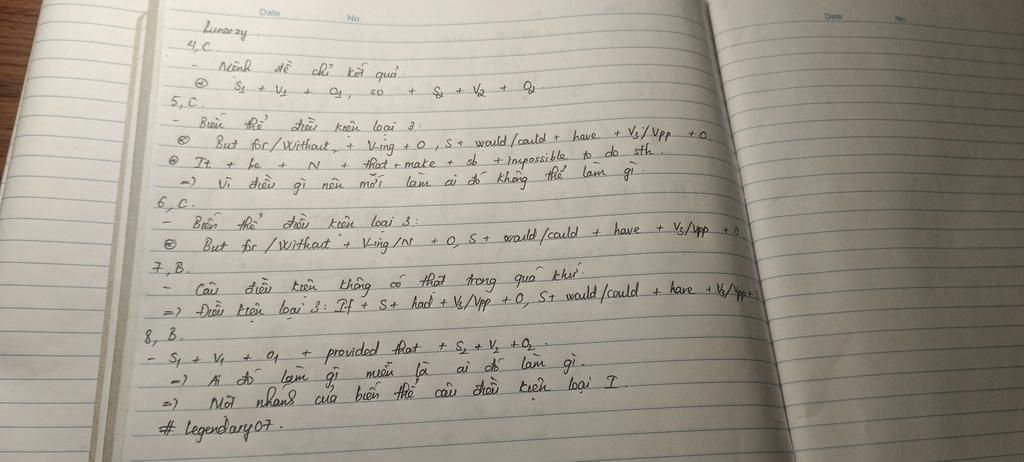 Date No.
Lunarzy
4, C.
- Mệnh đề chỉ kết quả
⊛ S1 + V1 + O1, so + S2 + V2 + O2
5, C.
- Biến thể điều kiện loại 3:
⊛ But for/Without, + V-ing + O, S + would/could + have + V3/Vpp + O.
⊛ It + be + N + that + make + sb + impossible to do sth.
=) Vì điều gì nên mới làm ai đó không thể làm gì.
6, C.
- Biến thể điều kiện loại 3:
⊛ But for/Without + V-ing/N + O, S + would/could + have + V3/Vpp + O
7, B.
- Câu điều kiện không có thật trong quá khứ.
=) Điều kiện loại 3: If + S + had + V3/Vpp + O, S + would/could + have + V3/Vpp +
8, B.
- S1 + V1 + O1 + provided that + S2 + V2 + O2.
=) Ai đó làm gì miễn là ai đó làm gì.
=) Một nhánh của biến thể câu điều kiện loại I.
# Legendary07.
Date No